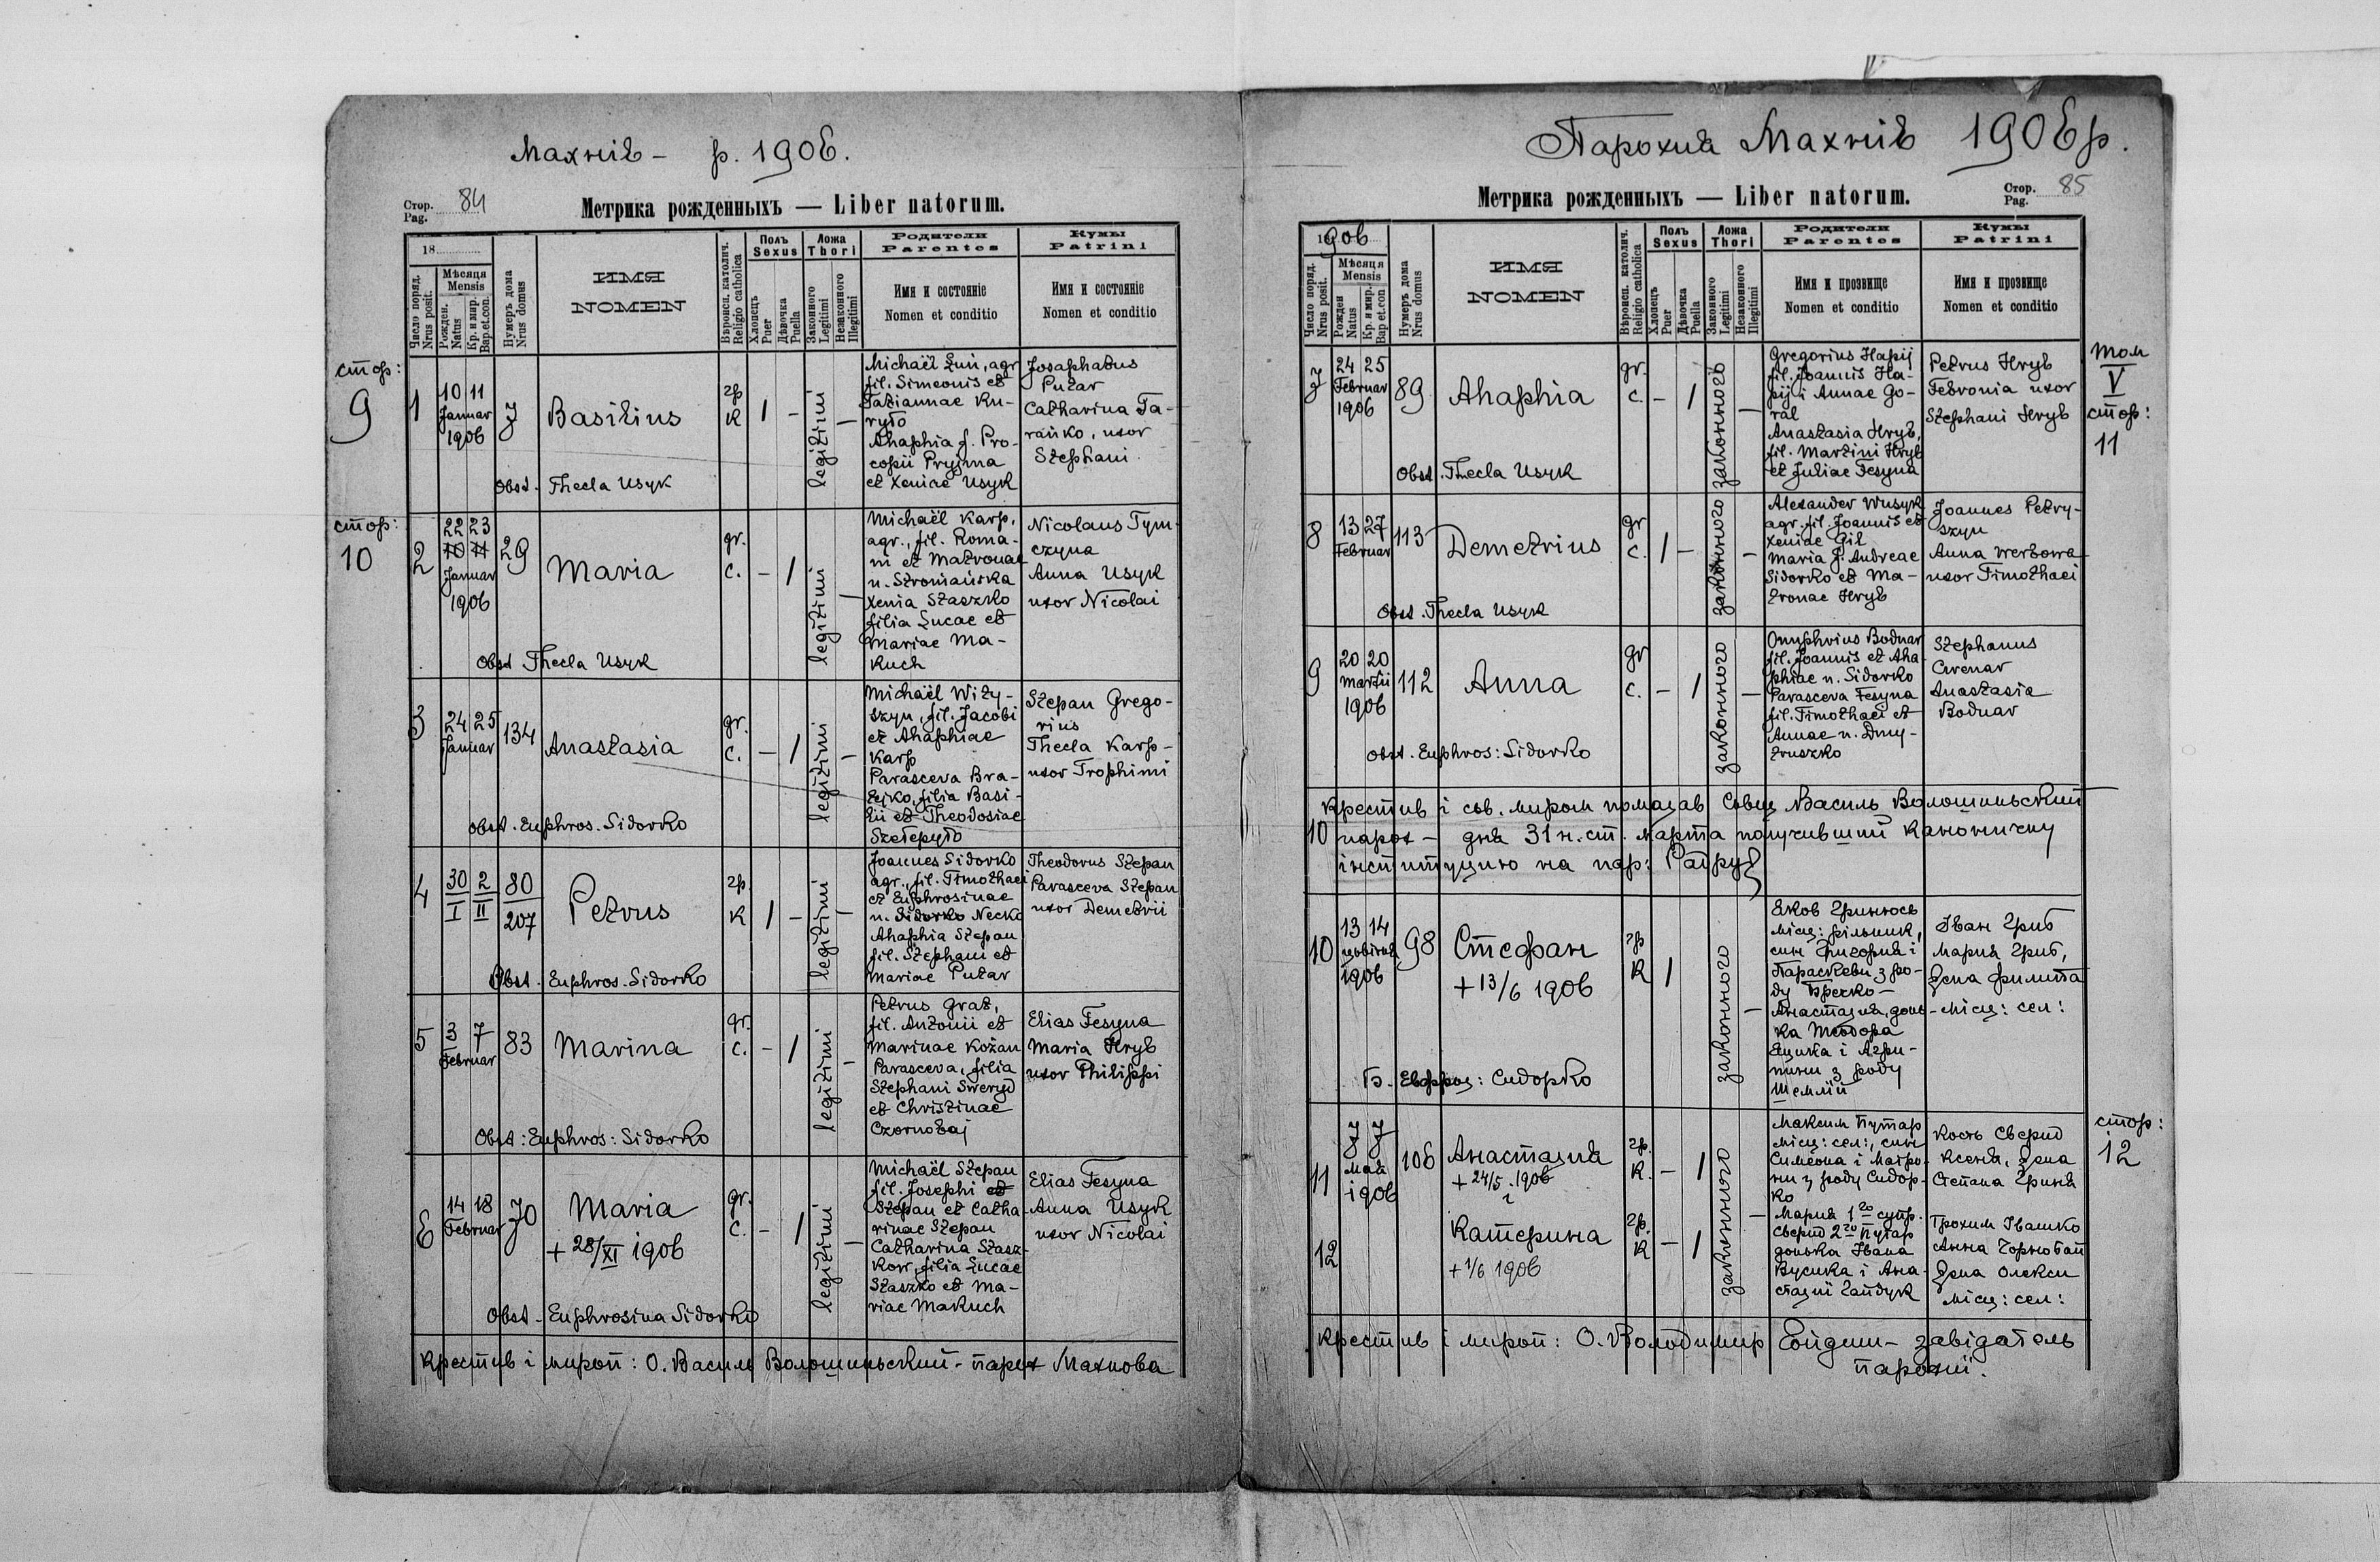 Махнів – р. 1906.
Стор.
Pag. 84
Метрика рожденныхъ — Liber natorum.
18
Число поряд.
Nrus posit.
Мѣсяця
Mensis
Рожден.
Natus
Кр. и мир.
Bap. et. con.
Нумеръ дома
Nrus domus
ИМЯ
NOMEN
Вѣроисп. католич.
Religio catholica
Полъ
Sexus
Хлопецъ
Puer
Дѣвочка
Puella
Ложа
Thori
Законного
Legitimi
Незаконного
Illegitimi
Родители
Parentes
Имя и состояніе
Nomen et conditio
Кумы
Patrini
Имя и состояніе
Nomen et conditio
стор:
9
1
10 11
Januar
1906
7
Basilius
гр
к
1 –
legitimi
–
Michaël Łuń, agr
fil. Simeonis et
Tatiannae Ku-
ryło
Ahaphia f. Pro-
copii Pryjma
et Xeniae Usyk
Josaphatus
Putar
Catharina Ta-
rańko, uxor
Stephani
Obst. Thecla Usyk
стор:
10
2
22 23
10 11
Januar
1906
29
Maria
gr.
c.
– 1
legitimi
–
Michaël Karp,
agr., fil. Roma-
ni et Matronae
n. Stromańska
Xenia Staszko
filia Lucae et
Mariae Ma-
kuch
Nicolaus Tym-
czyna
Anna Usyk
uxor Nicolai
Obst Thecla Usyk
3
24 25
Januar
134
Anastasia
gr.
c.
– 1
legitimi
–
Michaël Wity-
szyn, fil. Jacobi
et Ahaphiae
Karp
Parasceva Bra-
tejko, filia Basi-
lii et Theodosiae
Szełepyło
Stepan Grego-
rius
Thecla Karp-
uxor Trophimi
obst. Euphros. Sidorko
4
30 2
I II
80
207
Petrus
гр.
к
1 –
legitimi
–
Joannes Sidorko
agr., fil. Timothaei
et Euphrosinae
n. Sidorko Necko
Ahaphia Stepan
fil. Stephani et
Mariae Putar
Theodorus Stepan
Parasceva Stepan
uxor Demetrii
Obst. Euphros. Sidorko
5
3 7
Februar
83
Marina
gr.
c.
– 1
legitimi
–
Petrus Grat,
fil. Antonii et
Marinae Kożan
Parasceva, filia
Stephani Sweryd
et Christinae
Czornobaj
Elias Fesyna
Maria Hryb
uxor Philippi
Obst: Euphros: Sidorko
6
14 18
Februar
70
Maria
+ 28/XI 1906
gr.
c.
– 1
legitimi
–
Michaël Stepan
fil. Josephi et
Stepan et Catha-
rinae Stepan
Catharina Stasz-
kow, filia Lucae
Staszko et Ma-
riae Makuch
Elias Fesyna
Anna Usyk
uxor Nicolai
Obst – Euphrosina Sidorko
Крестив і мироп: О. Василь Волошиньский – парох Махнова
Парохия Махнів 1906 р.
Стор.
Pag. 85
Метрика рожденныхъ — Liber natorum.
1906
Число поряд.
Nrus posit.
Мѣсяця
Mensis
Рожден
Natus
Кр. и мир.
Bap. et. con
Нумеръ дома
Nrus domus
ИМЯ
NOMEN
Вѣроисп. католич.
Religio catholica
Полъ
Sexus
Хлопецъ
Puer
Дѣвочка
Puella
Ложа
Thori
Законного
Legitimi
Незаконного
Illegitimi
Родители
Parentes
Имя и прозвище
Nomen et conditio
Кумы
Patrini
Имя и прозвище
Nomen et conditio
7
24 25
Februar
1906
89
Ahaphia
gr.
c.
– 1
законного
–
Gregorius Hapij
fil. Joannis Ha-
pij i Annae Go-
ral
Anastasia Hryb,
fil. Martini Hryb
et Juliae Fesyna
Petrus Hryb
Febronia uxor
Stephani Hryb
том
V
стор:
11
Obst. Thecla Usyk
8
13 27
Februar
113
Demetrius
gr
c.
1 –
законного
–
Alexander Wusyk
agr. fil. Joannis et
Xeniae Gil
Maria f. Andreae
Sidorko et Ma-
tronae Hryb
Joannes Petry-
szyn
Anna Werbowa
uxor Timothaei
Obst. Thecla Usyk
9
20 20
Martii
1906
112
Anna
gr
c.
– 1
законного
–
Onuphrius Bodnar
fil. Joannis et Aha-
phiae n. Sidorko
Parasceva Fesyna
fil. Timothaei et
Annae n. Dmy-
truszko
Stephanus
Cwenar
Anastasia
Bodnar
obst. Euphros: Sidorko
Крестив і св. миром помазав Совц Василь Волошиньский
10 парох – дня 31 н. ст. марта получивший каноничну
інституцию на пар: Радруж
10
13 14
цьвітня
1906
98
Стефан
+ 13/6 1906
гр
к
1
законного
–
Яков Гриньось
місц: рільник,
син Григория і
Параскеви з ро-
ду Брежко –
Анастазия, донь-
ка Теодора
Яцика і Агри-
пини з роду
Шемлій
Іван Гриб
Мария Гриб,
жена Филипа
– місц: сел:
Б. Евфроз: Сидорко
11
7 7
Мая
1906
106
Анастазия
+ 24/5. 1906
і
гр.
к.
– 1
законного
–
Максим Путар
місц: сел:, син
Симеона і Матро-
ни з роду Сидор-
ко
Мария 1го супр.
Сверид 2го Путар
донька Івана
Вусика і Ана-
стазиї Гайдук
Кость Сверид
Ксеня, жена
Степана Гриня
стор:
12
12
Катерина
+ 1/6 1906
гр.
к
– 1
Трохим Івашко
Анна Чорнобай
жена Олекси
місц: сел:
Крестив і мироп: О. Володимир Гойдин – завідатель
парохиї.